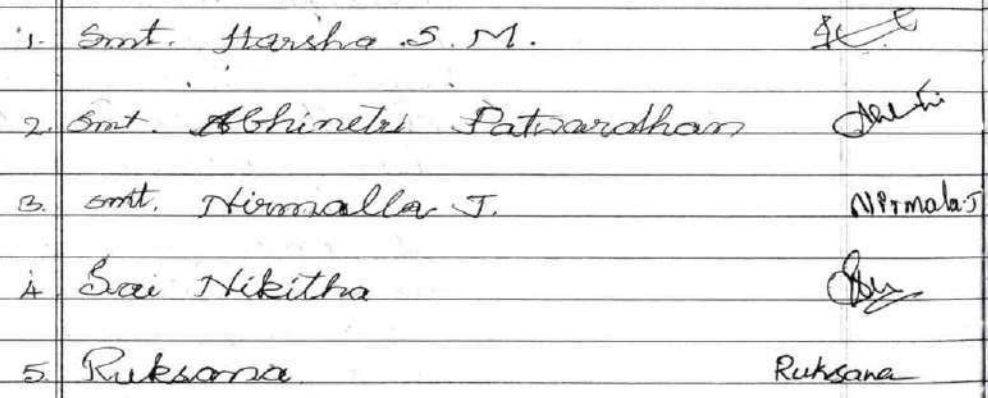 1. Smt. Harsha .S. M.
2. Smt. Abhinetri Patwardhan
3. smt. Nirmalla J. Nirmala.J
4. Sai Nikitha
5. Ruksana Ruksana